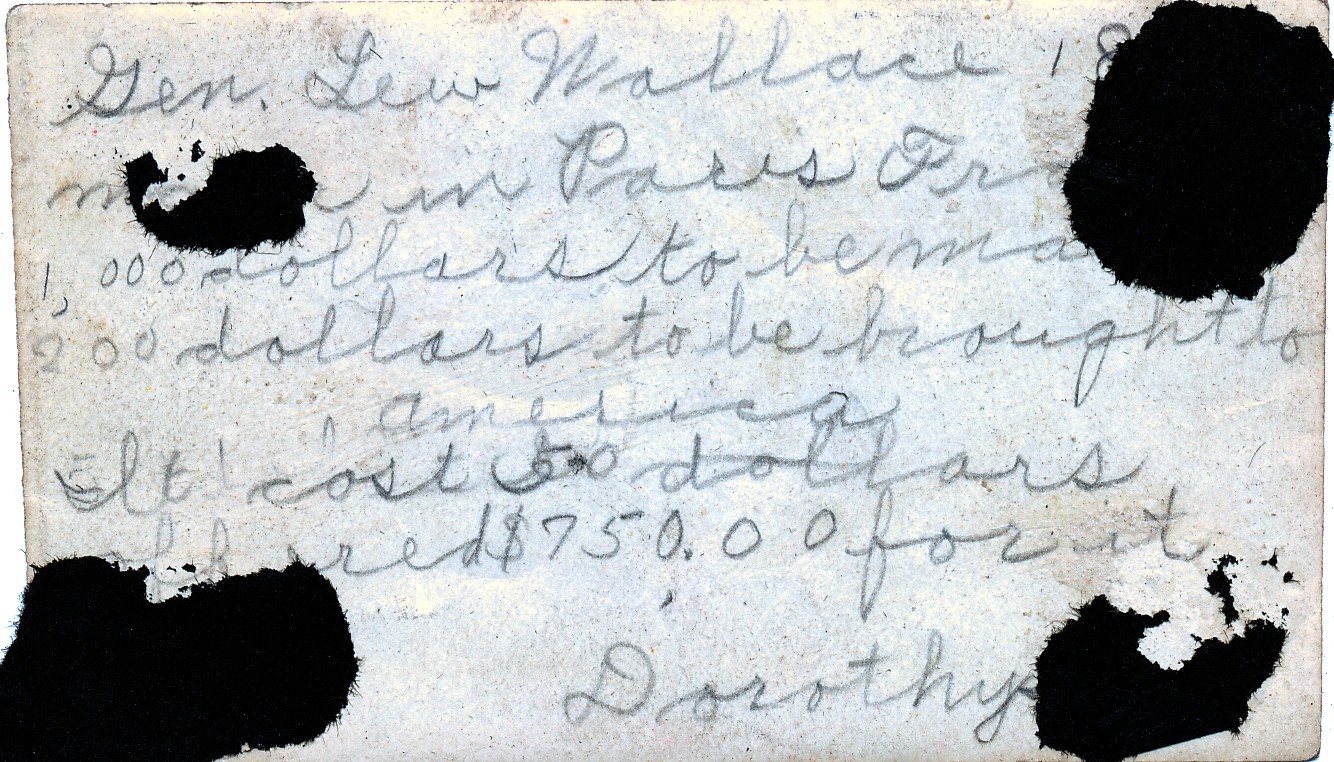 Gen. Lew Wallace 18
in Paris Fra
1,000 dollars to be ma
200 dollars to be brought to
America
It cost 50 dollars
$750.00 for it
Dorothy